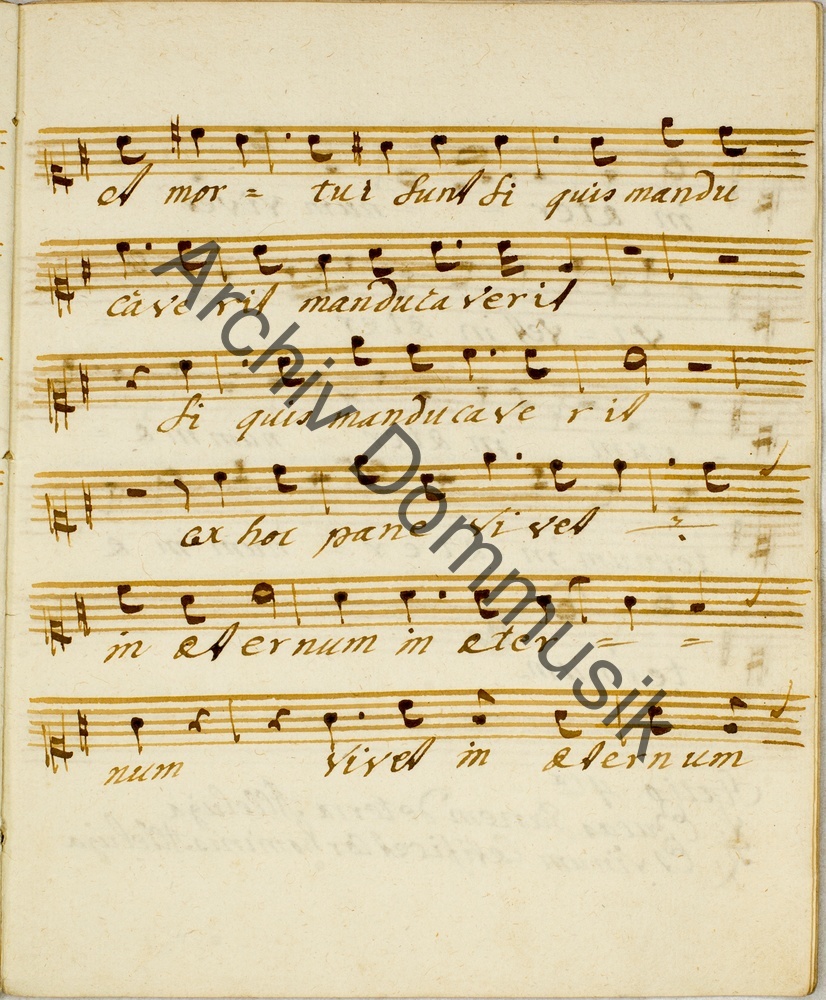 et mor = tui sunt si quis mandu
cave rit manducaverit
si quis manducave rit
ex hoc pane vivet
in æternum in æter = =
num vivet in æternum
Archiv Dommusik